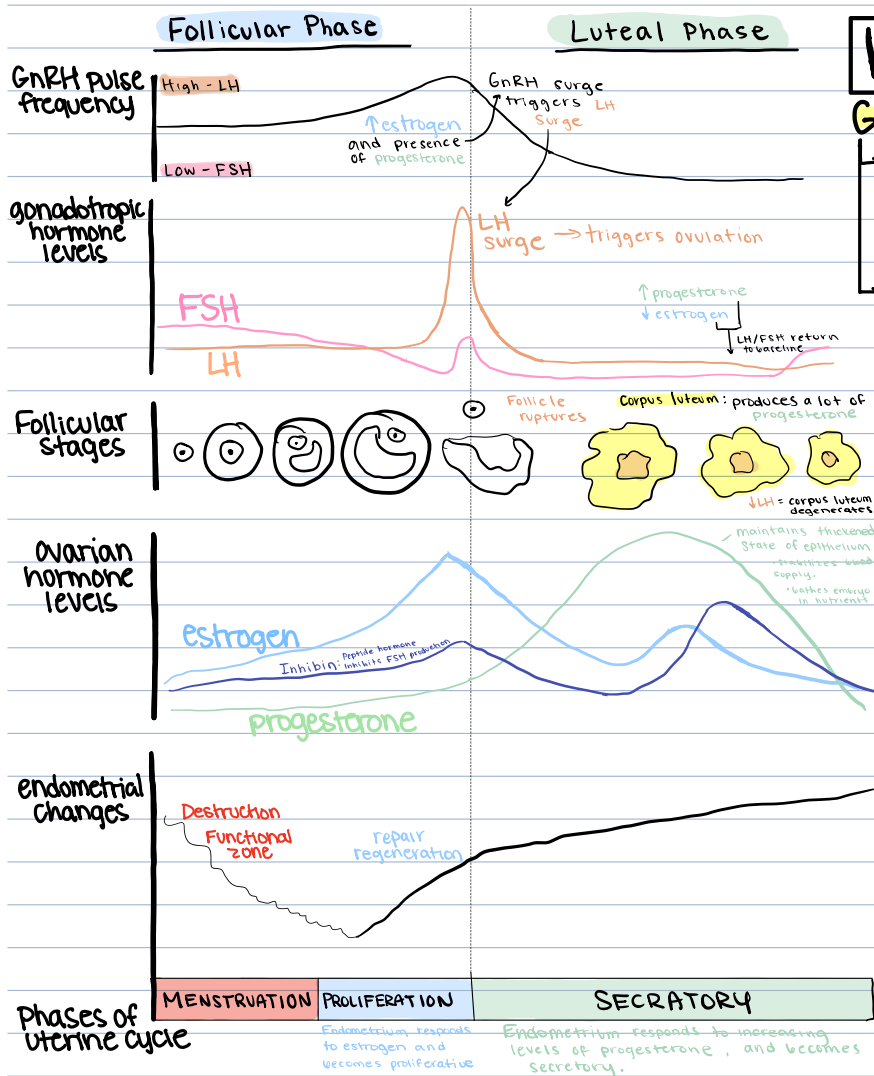 Follicular Phase
Luteal Phase
GnRH pulse
frequency
High - LH
Low - FSH
↑estrogen
and presence
of progesterone
GnRH surge
triggers LH
surge
gonadotropic
hormone
levels
LH
surge → triggers ovulation
FSH
LH
↑ progesterone
↓ estrogen
LH/FSH return
to baseline
Follicular
stages
Follicle
ruptures
Corpus luteum: produces a lot of
progesterone
↓LH = corpus luteum
degenerates
ovarian
hormone
levels
maintains thickened
state of epithelium
• stabilizes blood
supply.
• bathes embryo
in nutrients
estrogen
Inhibin: Peptide hormone
inhibits FSH production
progesterone
endometrial
changes
Destruction
Functional
zone
repair
regeneration
Phases of
uterine cycle
MENSTRUATION
PROLIFERATION
SECRATORY
Endometrium responds
to estrogen and
becomes proliferative
Endometrium responds to increasing
levels of progesterone, and becomes
secretory.
G